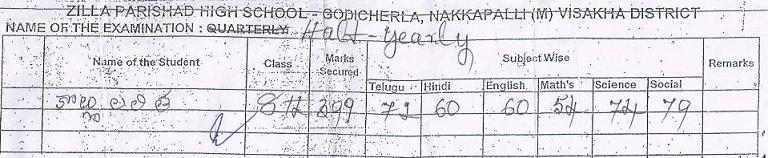 ZILLA PARISHAD HIGH SCHOOL - GODICHERLA, NAKKAPALLI (M) VISAKHA DISTRICT
NAME OF THE EXAMINATION : QUARTERLY Half-yearly
Name of the Student Class Marks Secured Subject Wise Remarks
Telugu Hindi English Math's Science Social
లలిత 8th 399 72 60 60 54 74 79